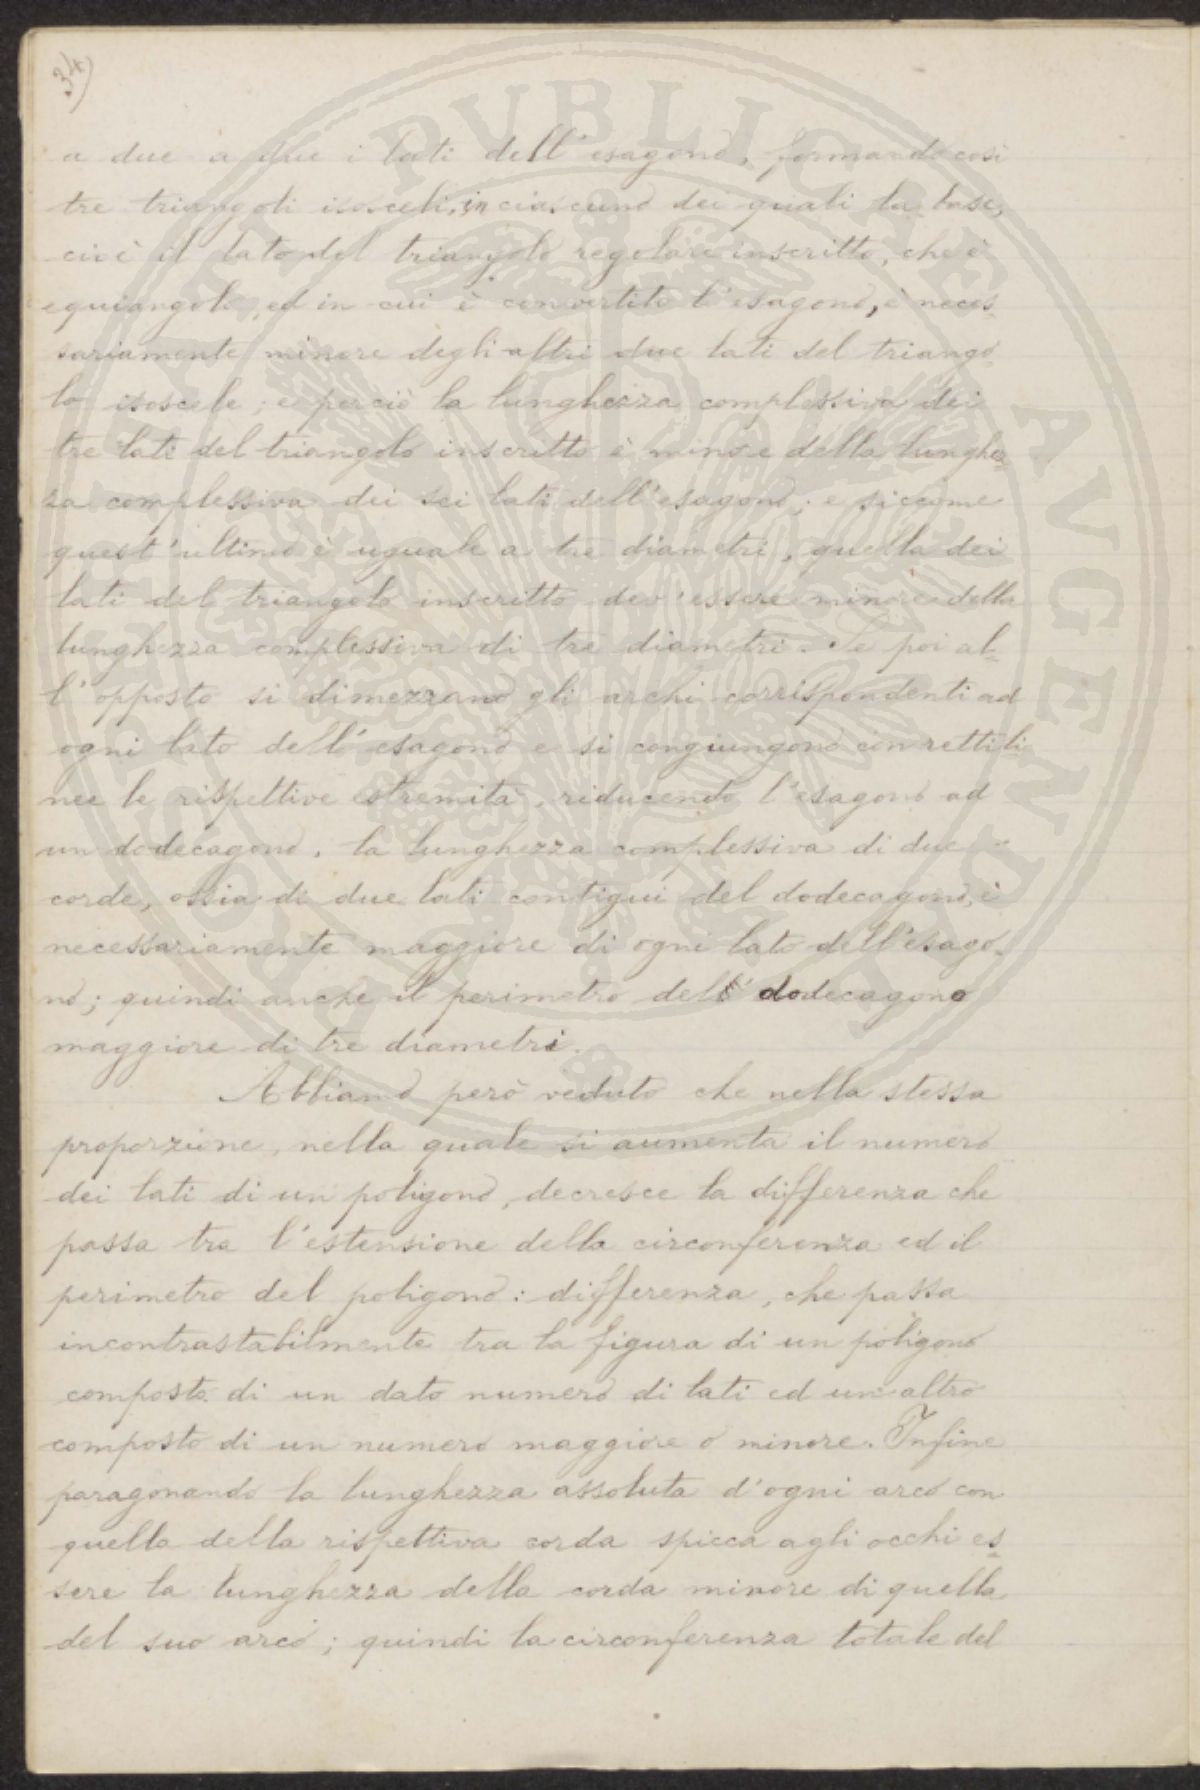 34)
a due a due i lati dell'esagono, formando così
tre triangoli isosceli, in ciascuno dei quali la base,
cioè il lato del triangolo regolare inscritto, che è
equiangolo, ed in cui è convertito l'esagono, è neces-
sariamente minore degli altri due lati del triango-
lo isoscele; e perciò la lunghezza complessiva dei
tre lati del triangolo inscritto è minore della lunghez-
za complessiva dei sei lati dell'esagono; e siccome
quest'ultimo è uguale a tre diametri, quella dei
lati del triangolo inscritto dev'essere minore della
lunghezza complessiva di tre diametri. Se poi al-
l'opposto si dimezzano gli archi corrispondenti ad
ogni lato dell'esagono e si congiungono con retti li-
nee le rispettive estremità, riducendo l'esagono ad
un dodecagono, la lunghezza complessiva di due
corde, ossia di due lati contigui del dodecagono, è
necessariamente maggiore di ogni lato dell'esago-
no; quindi anche il perimetro del dodecagono
maggiore di tre diametri.
Abbiamo però veduto che nella stessa
proporzione, nella quale si aumenta il numero
dei lati di un poligono, decresce la differenza che
passa tra l'estensione della circonferenza ed il
perimetro del poligono: differenza, che passa
incontrastabilmente tra la figura di un poligono
composto di un dato numero di lati ed un altro
composto di un numero maggiore o minore. Infine
paragonando la lunghezza assoluta d'ogni arco con
quella della rispettiva corda spicca agli occhi es-
sere la lunghezza della corda minore di quella
del suo arco; quindi la circonferenza totale del